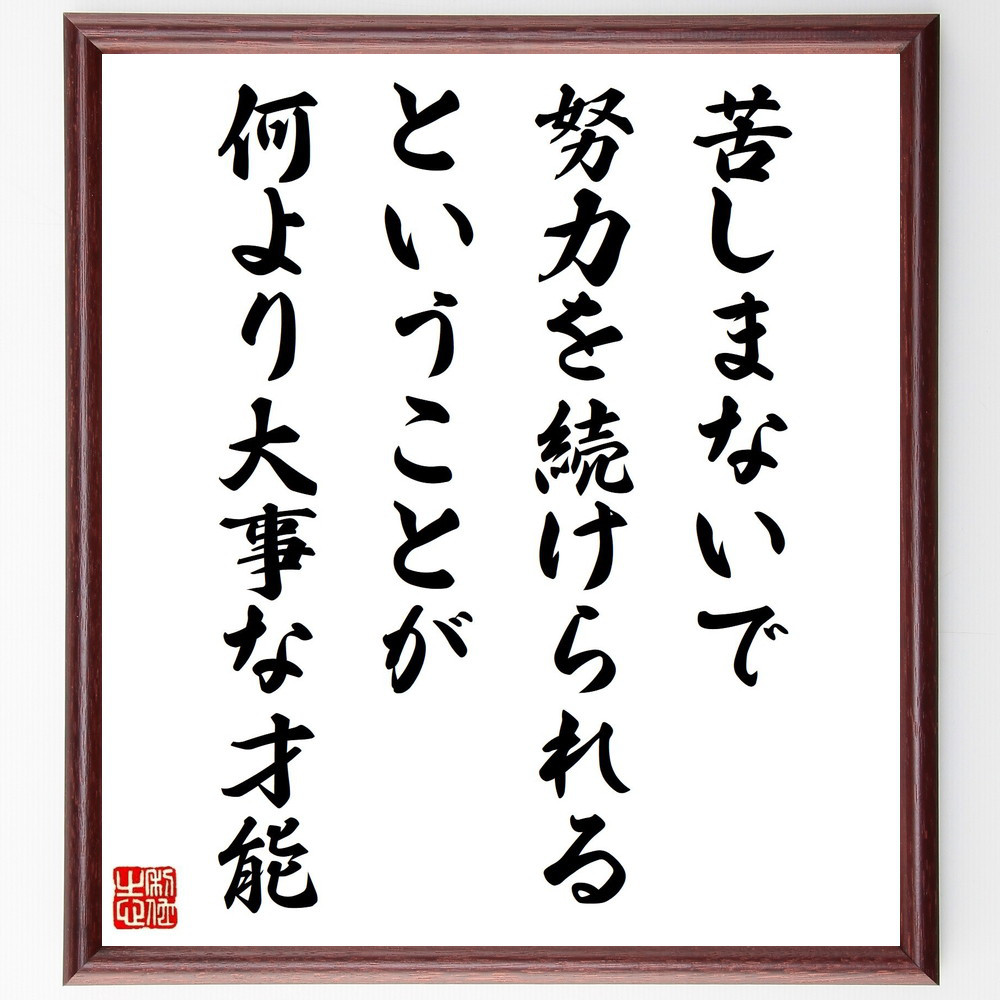 苦しまないで
努力を続けられる
ということが
何より大事な才能